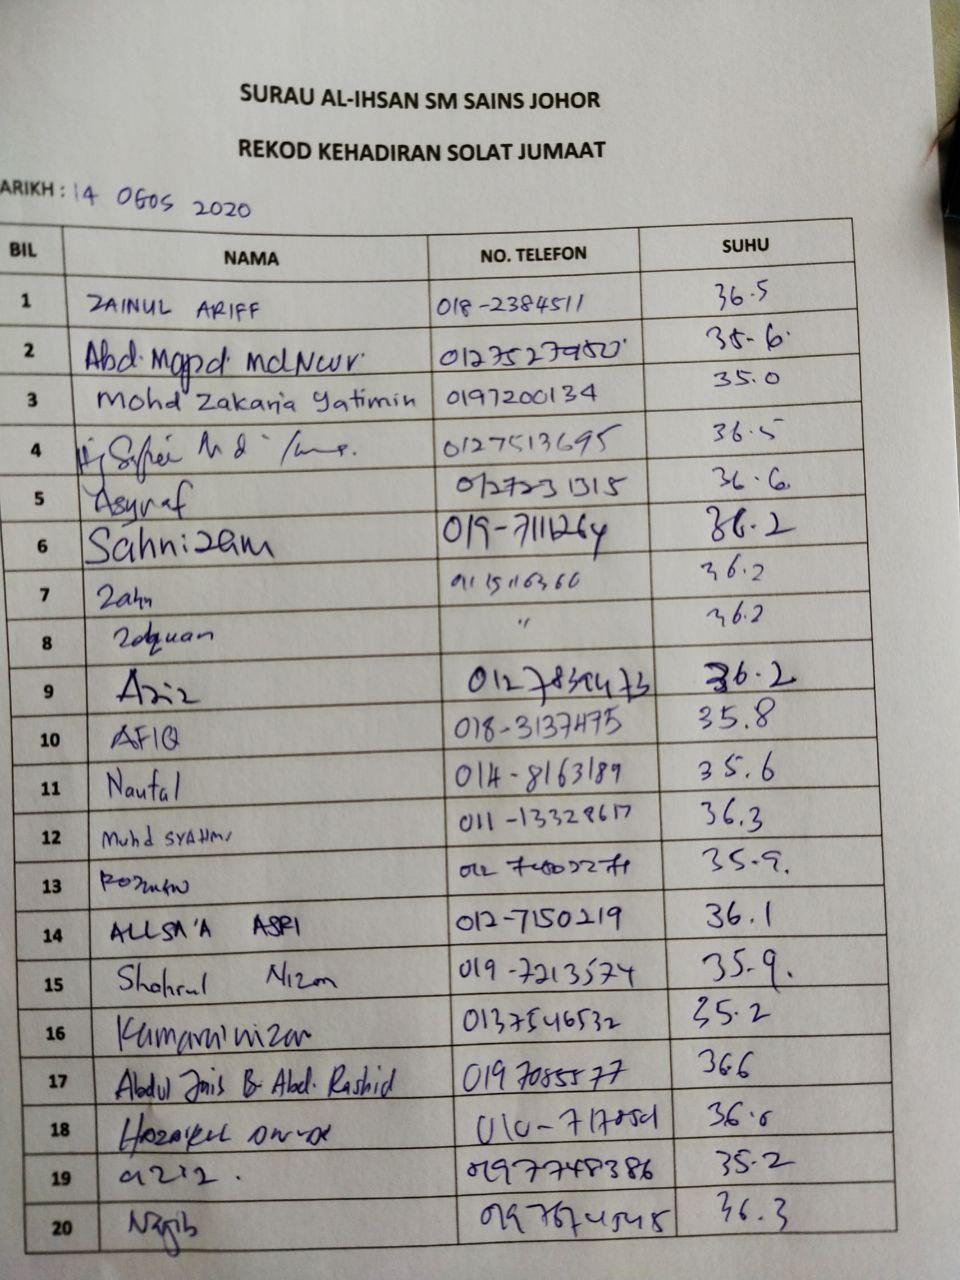 SURAU AL-IHSAN SM SAINS JOHOR
REKOD KEHADIRAN SOLAT JUMAAT
ARIKH : 14 OGOS 2020
BIL NAMA NO. TELEFON SUHU
1 ZAINUL ARIFF 018-2384511 36.5
2 Abd. Majid Md Noor 0127527950 35-6.
3 Mohd Zakaria Yatimin 0197200134 35.0
4 Hj 0127513695 36.5
5 Asyraf 0127231315 36.6
6 Sahnizam 019-7116264 36.2
7 36.2
8 " 36.2
9 Aziz 36.2
10 AFIQ 018-3137475 35.8
11 Naufal 014-8163189 35.6
12 Muhd SYAHMI 011-13328617 36.3
13 35.9.
14 ASRI 012-7150219 36.1
15 Shahrul Nizam 019-7213574 35.9.
16 0137546532 35.2
17 Abdul Jais B. Abd. Rashid 0197085577 366
18
19 aziz. 0197748386 35.2
20 Najib 36.3